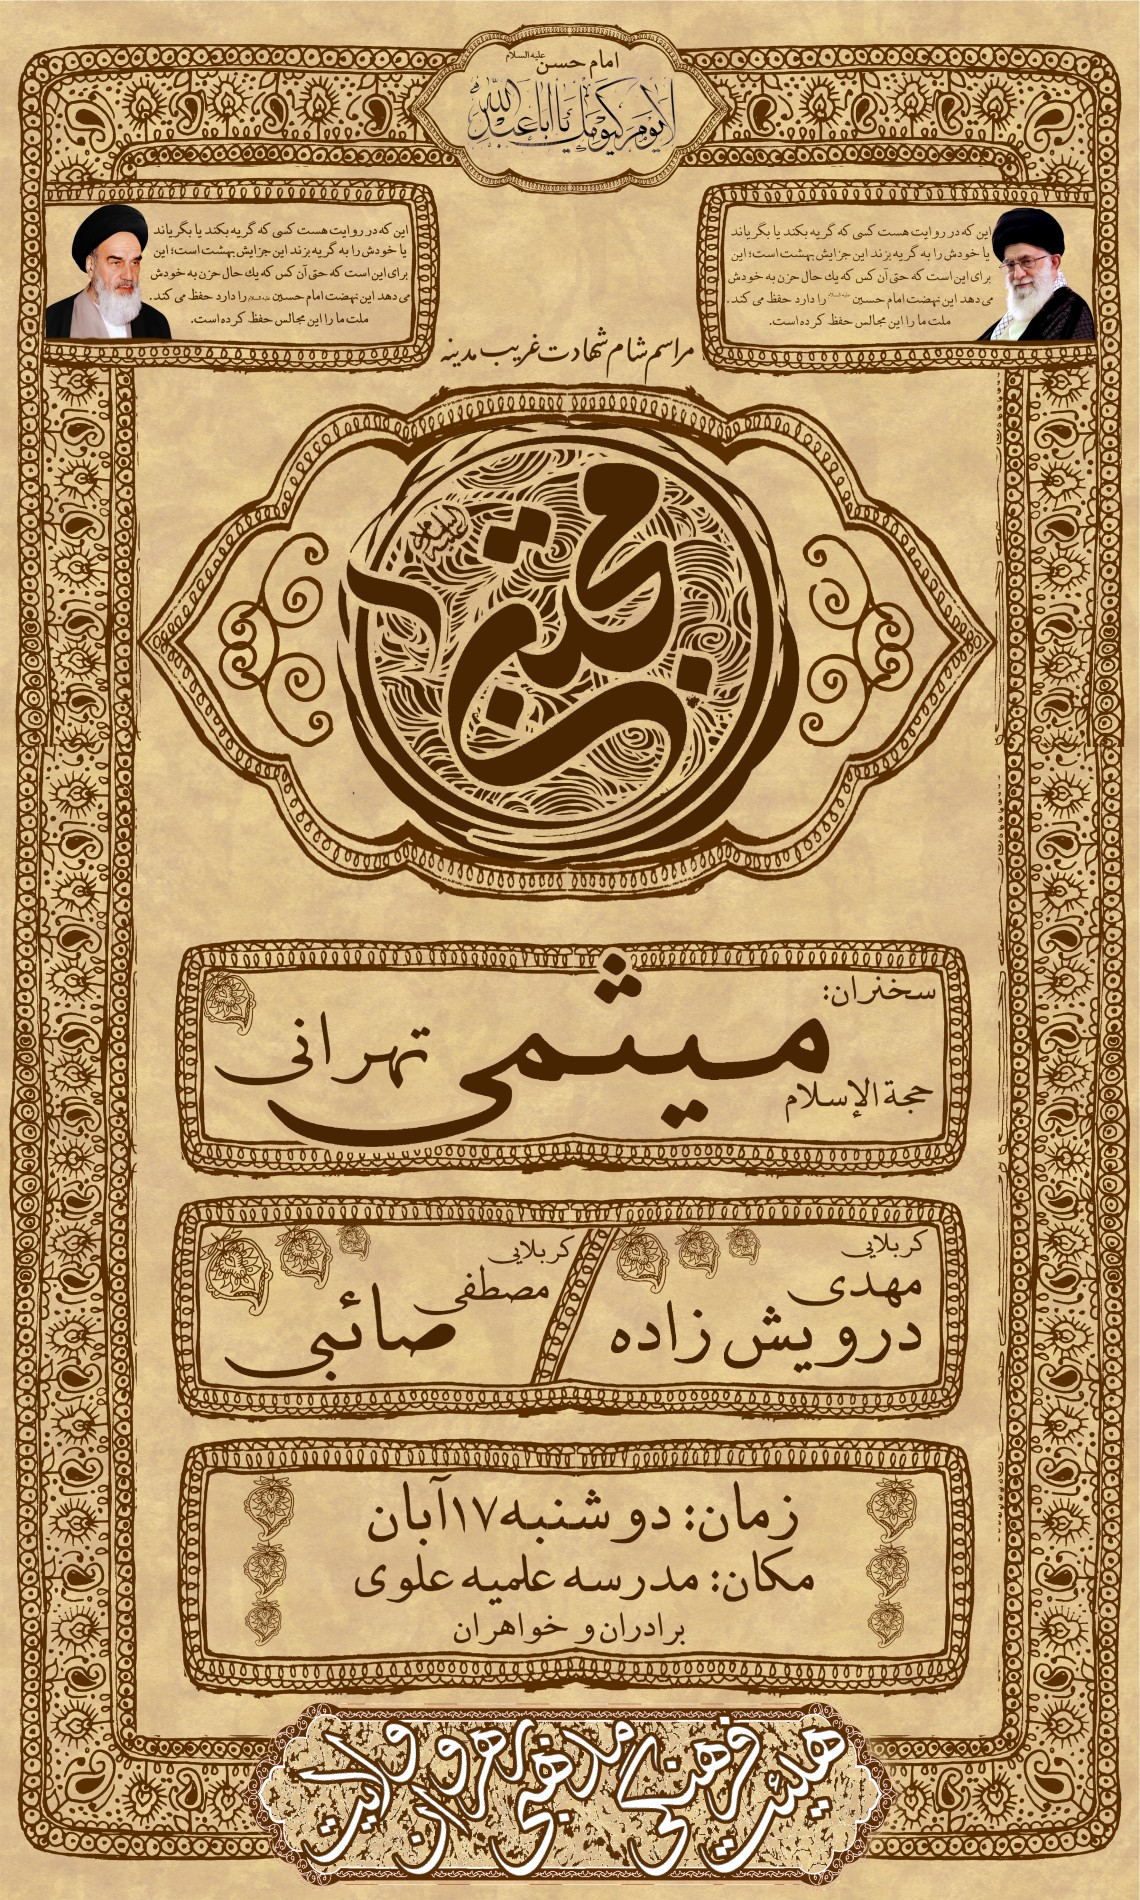 امام حسن علیه السلام
لا یوم کیومک یا اباعبدالله
این که در روایت هست کسی که گریه بکند یا بگریاند
یا خودش را به گریه بزند این جزایش بهشت است؛ این
برای این است که حتی آن کس که یك حال حزن به خودش
می دهد این نهضت امام حسین علیه السلام را دارد حفظ می کند.
ملت ما را این مجالس حفظ کرده است.
این که در روایت هست کسی که گریه بکند یا بگریاند
یا خودش را به گریه بزند این جزایش بهشت است؛ این
برای این است که حتی آن کس که یك حال حزن به خودش
می دهد این نهضت امام حسین علیه السلام را دارد حفظ می کند.
ملت ما را این مجالس حفظ کرده است.
مراسم شام شهادت غریب مدینه
مجتبی
سخنران:
حجة الإسلام میثمی تهرانی
کربلایی
مهدی
درویش زاده
کربلایی
مصطفی
صائبی
زمان: دوشنبه ۱۷ آبان
مکان: مدرسه علمیه علوی
برادران و خواهران
هیئت فرهنگی مذهبی رهروان ولایت